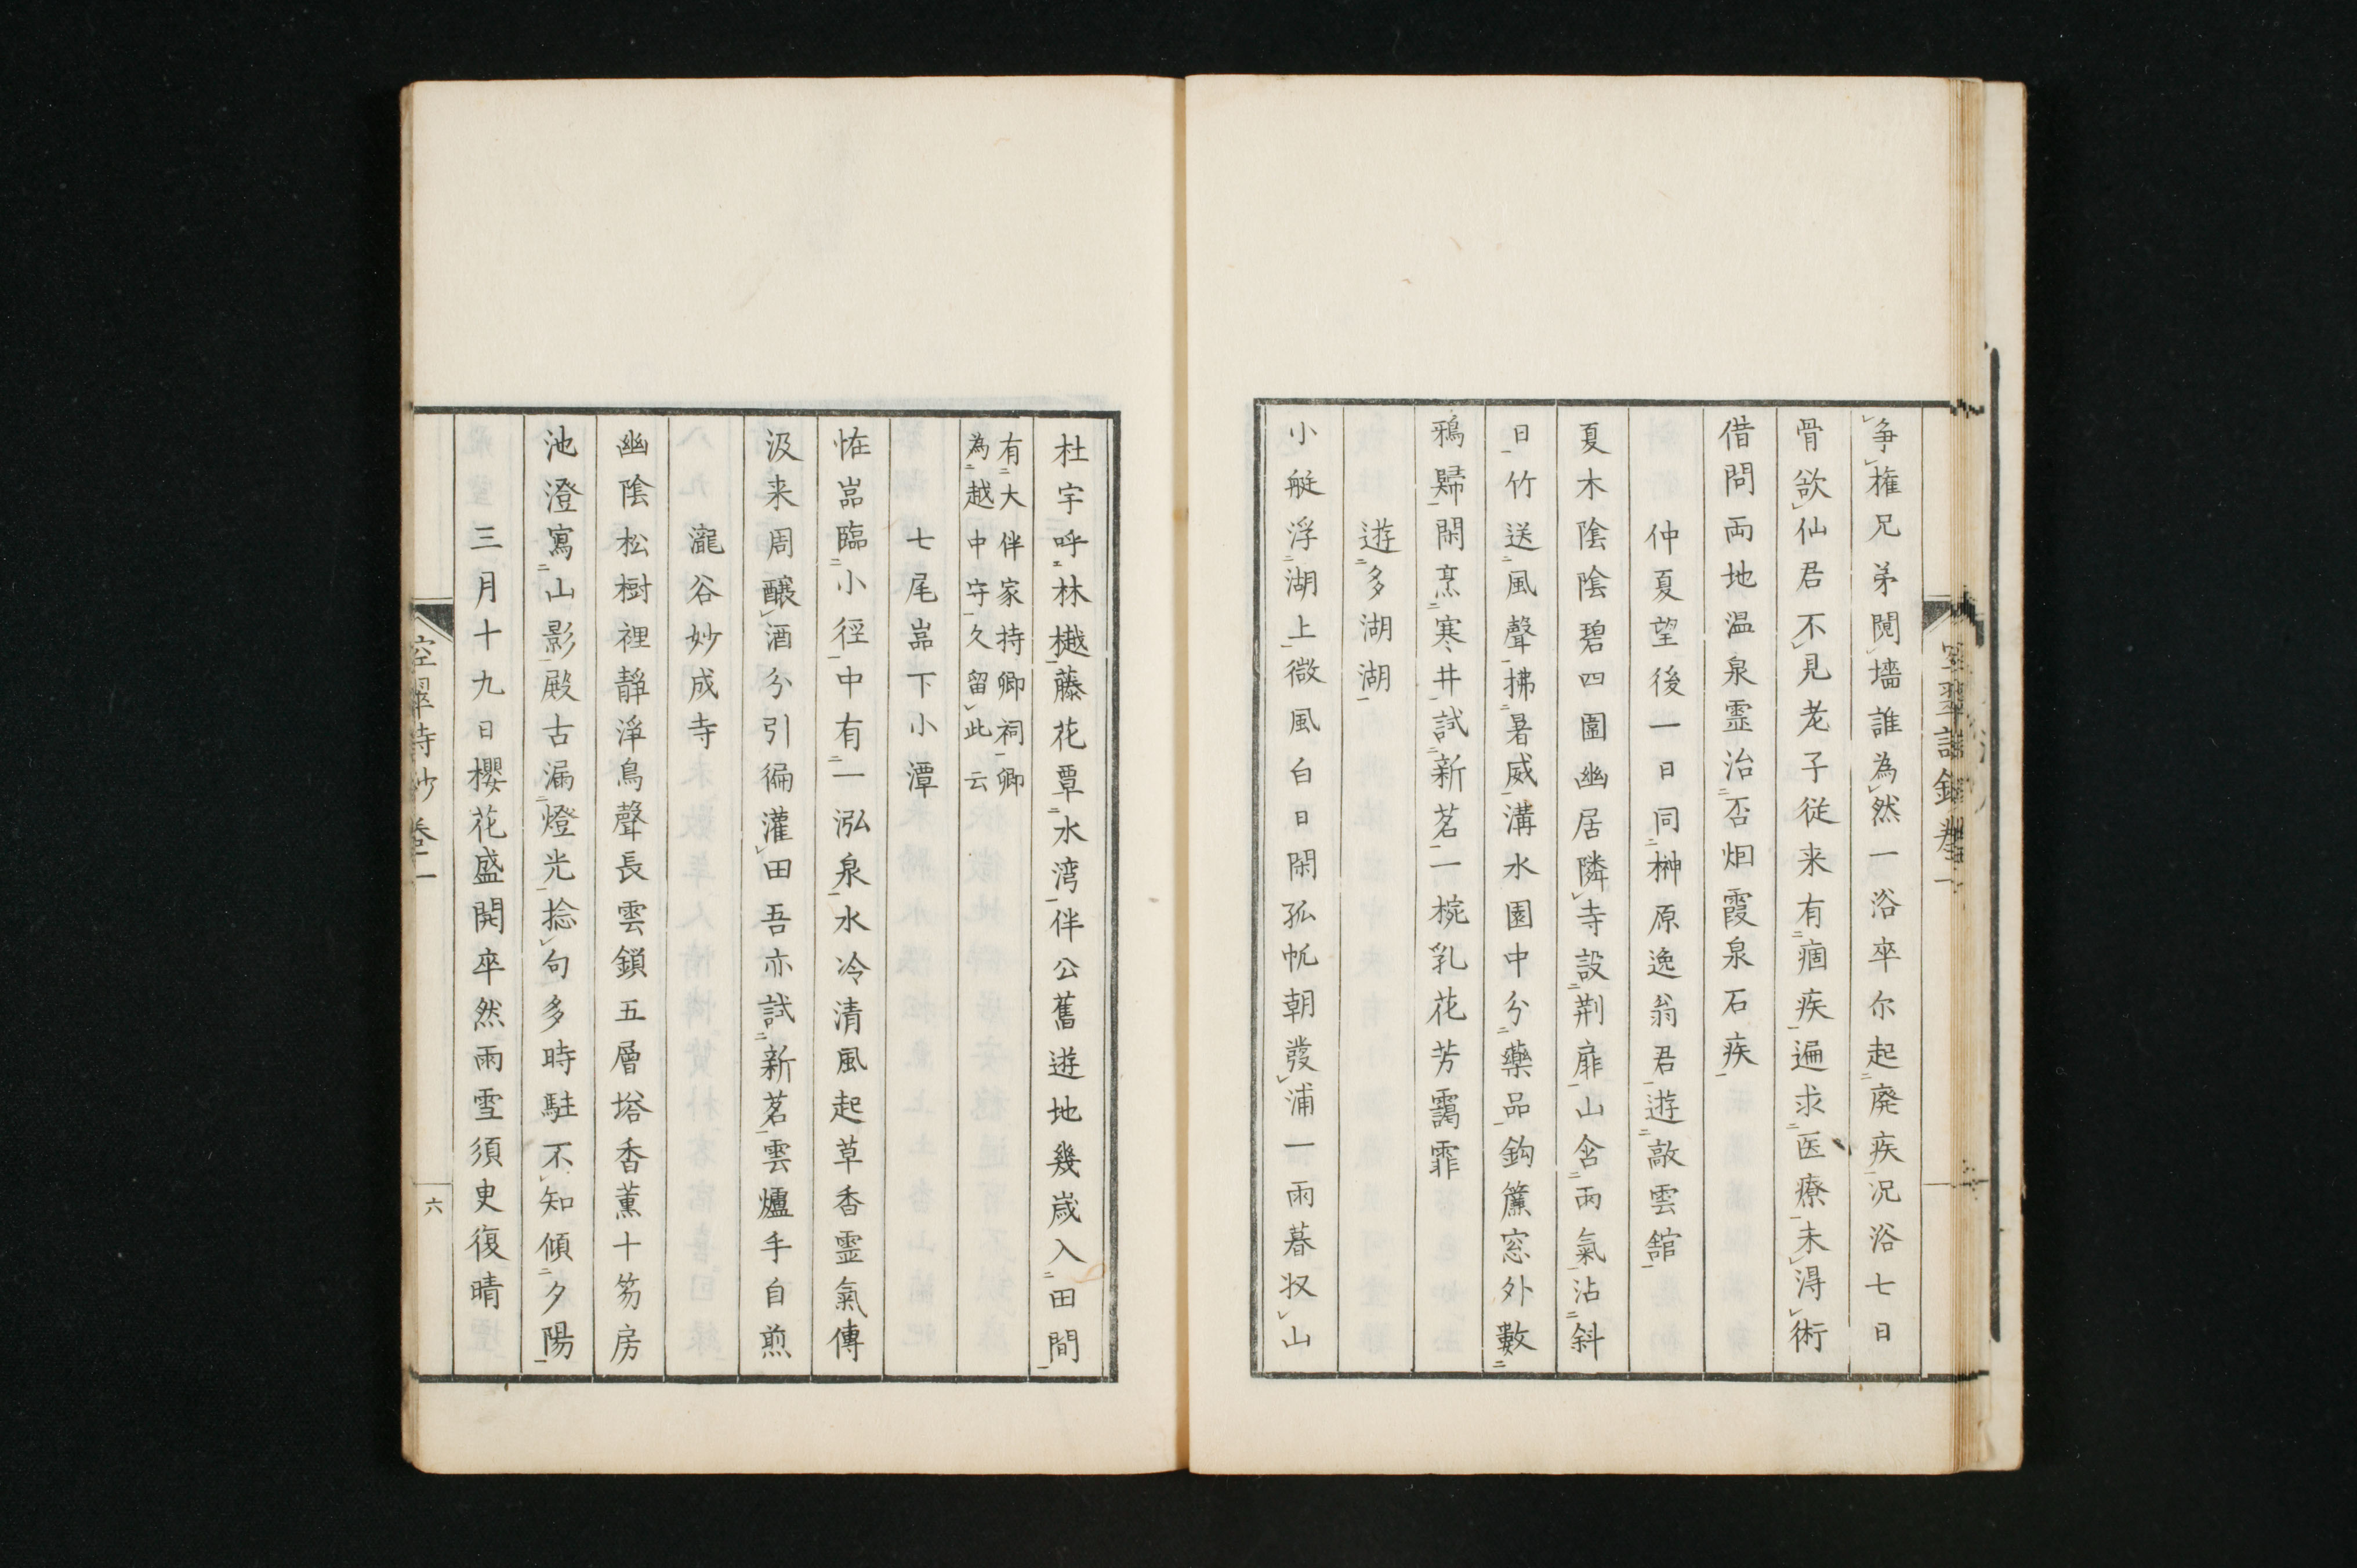 争権兄弟鬩墻誰為然一浴卒尔起廃疾况浴七日
骨欲仙君不見老子従来有痼疾遍求医療未淂術
借問両地温泉霊治否烟霞泉石疾
仲夏望後一日同榊原逸翁君遊敲雲舘
夏木陰陰碧四圍幽居隣寺設荆扉山含雨氣沾斜
日竹送風聲拂暑威溝水園中分藥品鈎簾窓外數
鴉歸閑烹寒井試新茗一椀乳花芳靄霏
遊多湖湖
小艇浮湖上微風白日閑孤帆朝發浦一雨暮収山
杜宇呼林樾藤花覃水湾伴公舊遊地幾歳入田間
有大伴家持卿祠卿
為越中守久留此云
七尾嵓下小潭
恠嵓臨小徑中有一泓泉水冷清風起草香霊氣傳
汲来周醸酒分引徧灌田吾亦試新茗雲爐手自煎
瀧谷妙成寺
幽陰松樹裡靜淨鳥聲長雲鎖五層塔香薫十笏房
池澄寫山影殿古漏燈光捻句多時駐不知傾夕陽
三月十九日櫻花盛開卒然雨雪須臾復晴
空翠詩鈔 巻二
六